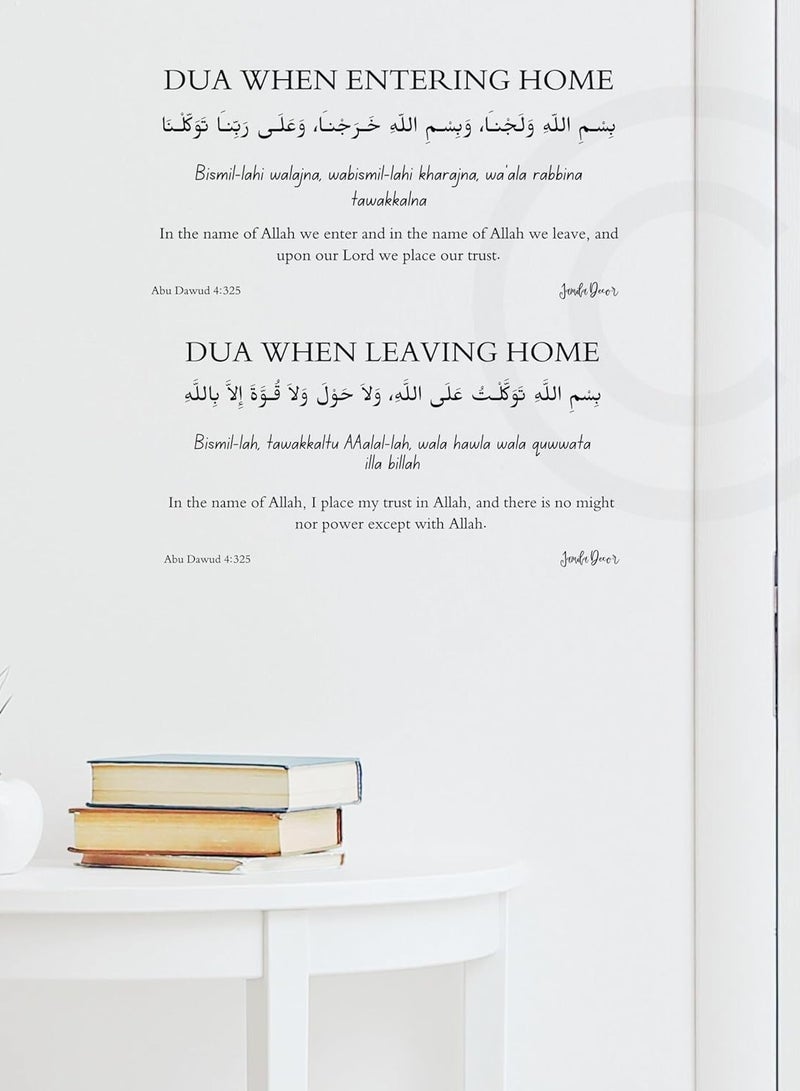 DUA WHEN ENTERING HOME
بِسْمِ اللّهِ وَلَجْنـَا، وَبِسْمِ اللّهِ خَـرَجْنـَا، وَعَلَـى رَبِّنـَا تَوَكَّلْـنَا
Bismil-lahi walajna, wabismil-lahi kharajna, wa'ala rabbina
tawakkalna
In the name of Allah we enter and in the name of Allah we leave, and
upon our Lord we place our trust.
Abu Dawud 4:325
Jamila Decor
DUA WHEN LEAVING HOME
بِسْمِ اللَّهِ تَوَكَّلْـتُ عَلَى اللَّهِ، وَلاَ حَوْلَ وَلاَ قُـوَّةَ إِلاَّ بِاللَّهِ
Bismil-lah, tawakkaltu AAalal-lah, wala hawla wala quwwata
illa billah
In the name of Allah, I place my trust in Allah, and there is no might
nor power except with Allah.
Abu Dawud 4:325
Jamila Decor